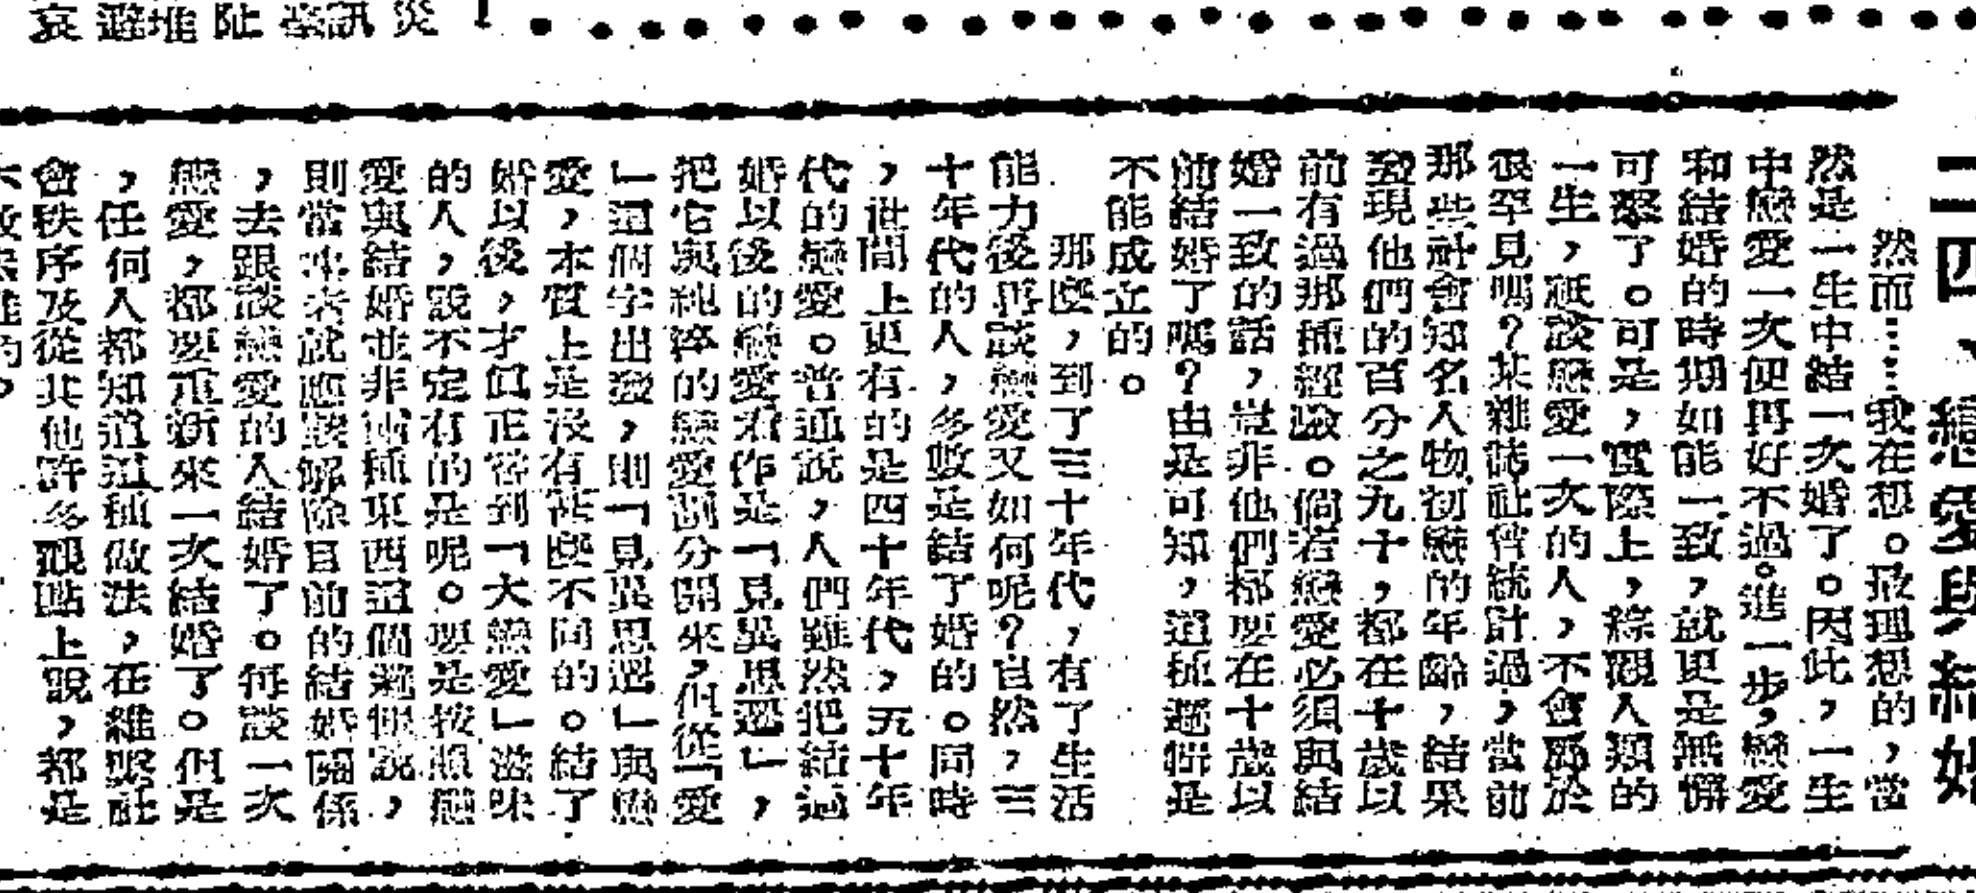 二四、戀愛與結婚
然而……我在想。最理想的，當
然是一生中結一次婚了。因此，一生
中戀愛一次便再好不過。進一步，戀愛
和結婚的時期如能一致，就更是無懈
可擊了。可是，實際上，綜觀人類的
一生，祇談戀愛一次的人，不會屬於
很罕見嗎？某雜誌社曾統計過，當前
那些社會知名人物初戀的年齡，結果
發現他們的百分之九十，都在十歲以
前有過那種經驗。倘若戀愛必須與結
婚一致的話，豈非他們都要在十歲以
前結婚了嗎？由是可知，這種邏輯是
不能成立的。
那麼，到了三十年代，有了生活
能力後再談戀愛又如何呢？自然，三
十年代的人，多數是結了婚的。同時
，世間上更有的是四十年代，五十年
代的戀愛。普通說，人們雖然把結過
婚以後的戀愛看作是「見異思遷」，
把它與純粹的戀愛劃分開來，但從「愛
」這個字出發，則「見異思遷」與戀
愛，本質上是沒有甚麼不同的。結了
婚以後，才真正嘗到「大戀愛」滋味
的人，說不定有的是呢。要是按照戀
愛與結婚並非兩種東西這個邏輯說，
則當事者就應該解除目前的結婚關係
，去跟談戀愛的人結婚了。每談一次
戀愛，都要重新來一次結婚了。但是
，任何人都知道這種做法，在維繫社
會秩序及從其他許多觀點上說，都是